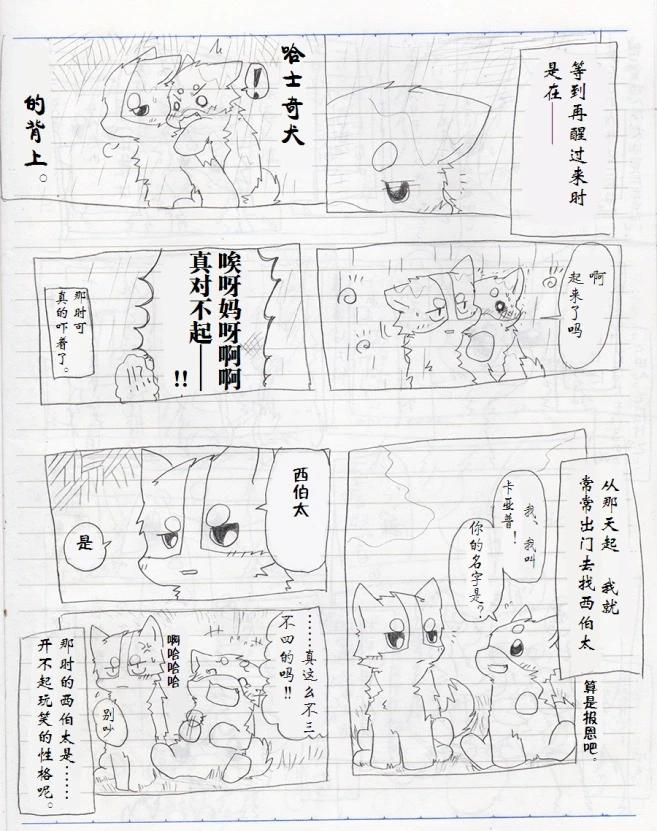 等到再醒过来时
是在——
哈士奇犬
!
的背上。
啊
起来了吗
唉呀妈呀啊啊
真对不起——!!
!?
那时可
真的吓着了。
从那天起 我就
常常出门去找西伯太
我、我叫
卡亚普!
你的名字是?
算是报恩吧。
西伯太
是
……真这么不三
不四的吗!!
啊哈哈哈
别吵
那时的西伯太是……
开不起玩笑的性格呢。